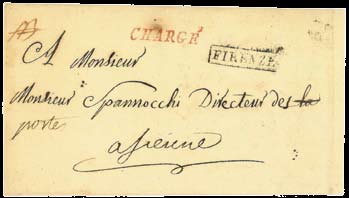 CHARGÉ
FIRENZE
A Monsieur
Monsieur Spannocchi Directeur des la
poste
a Sienne